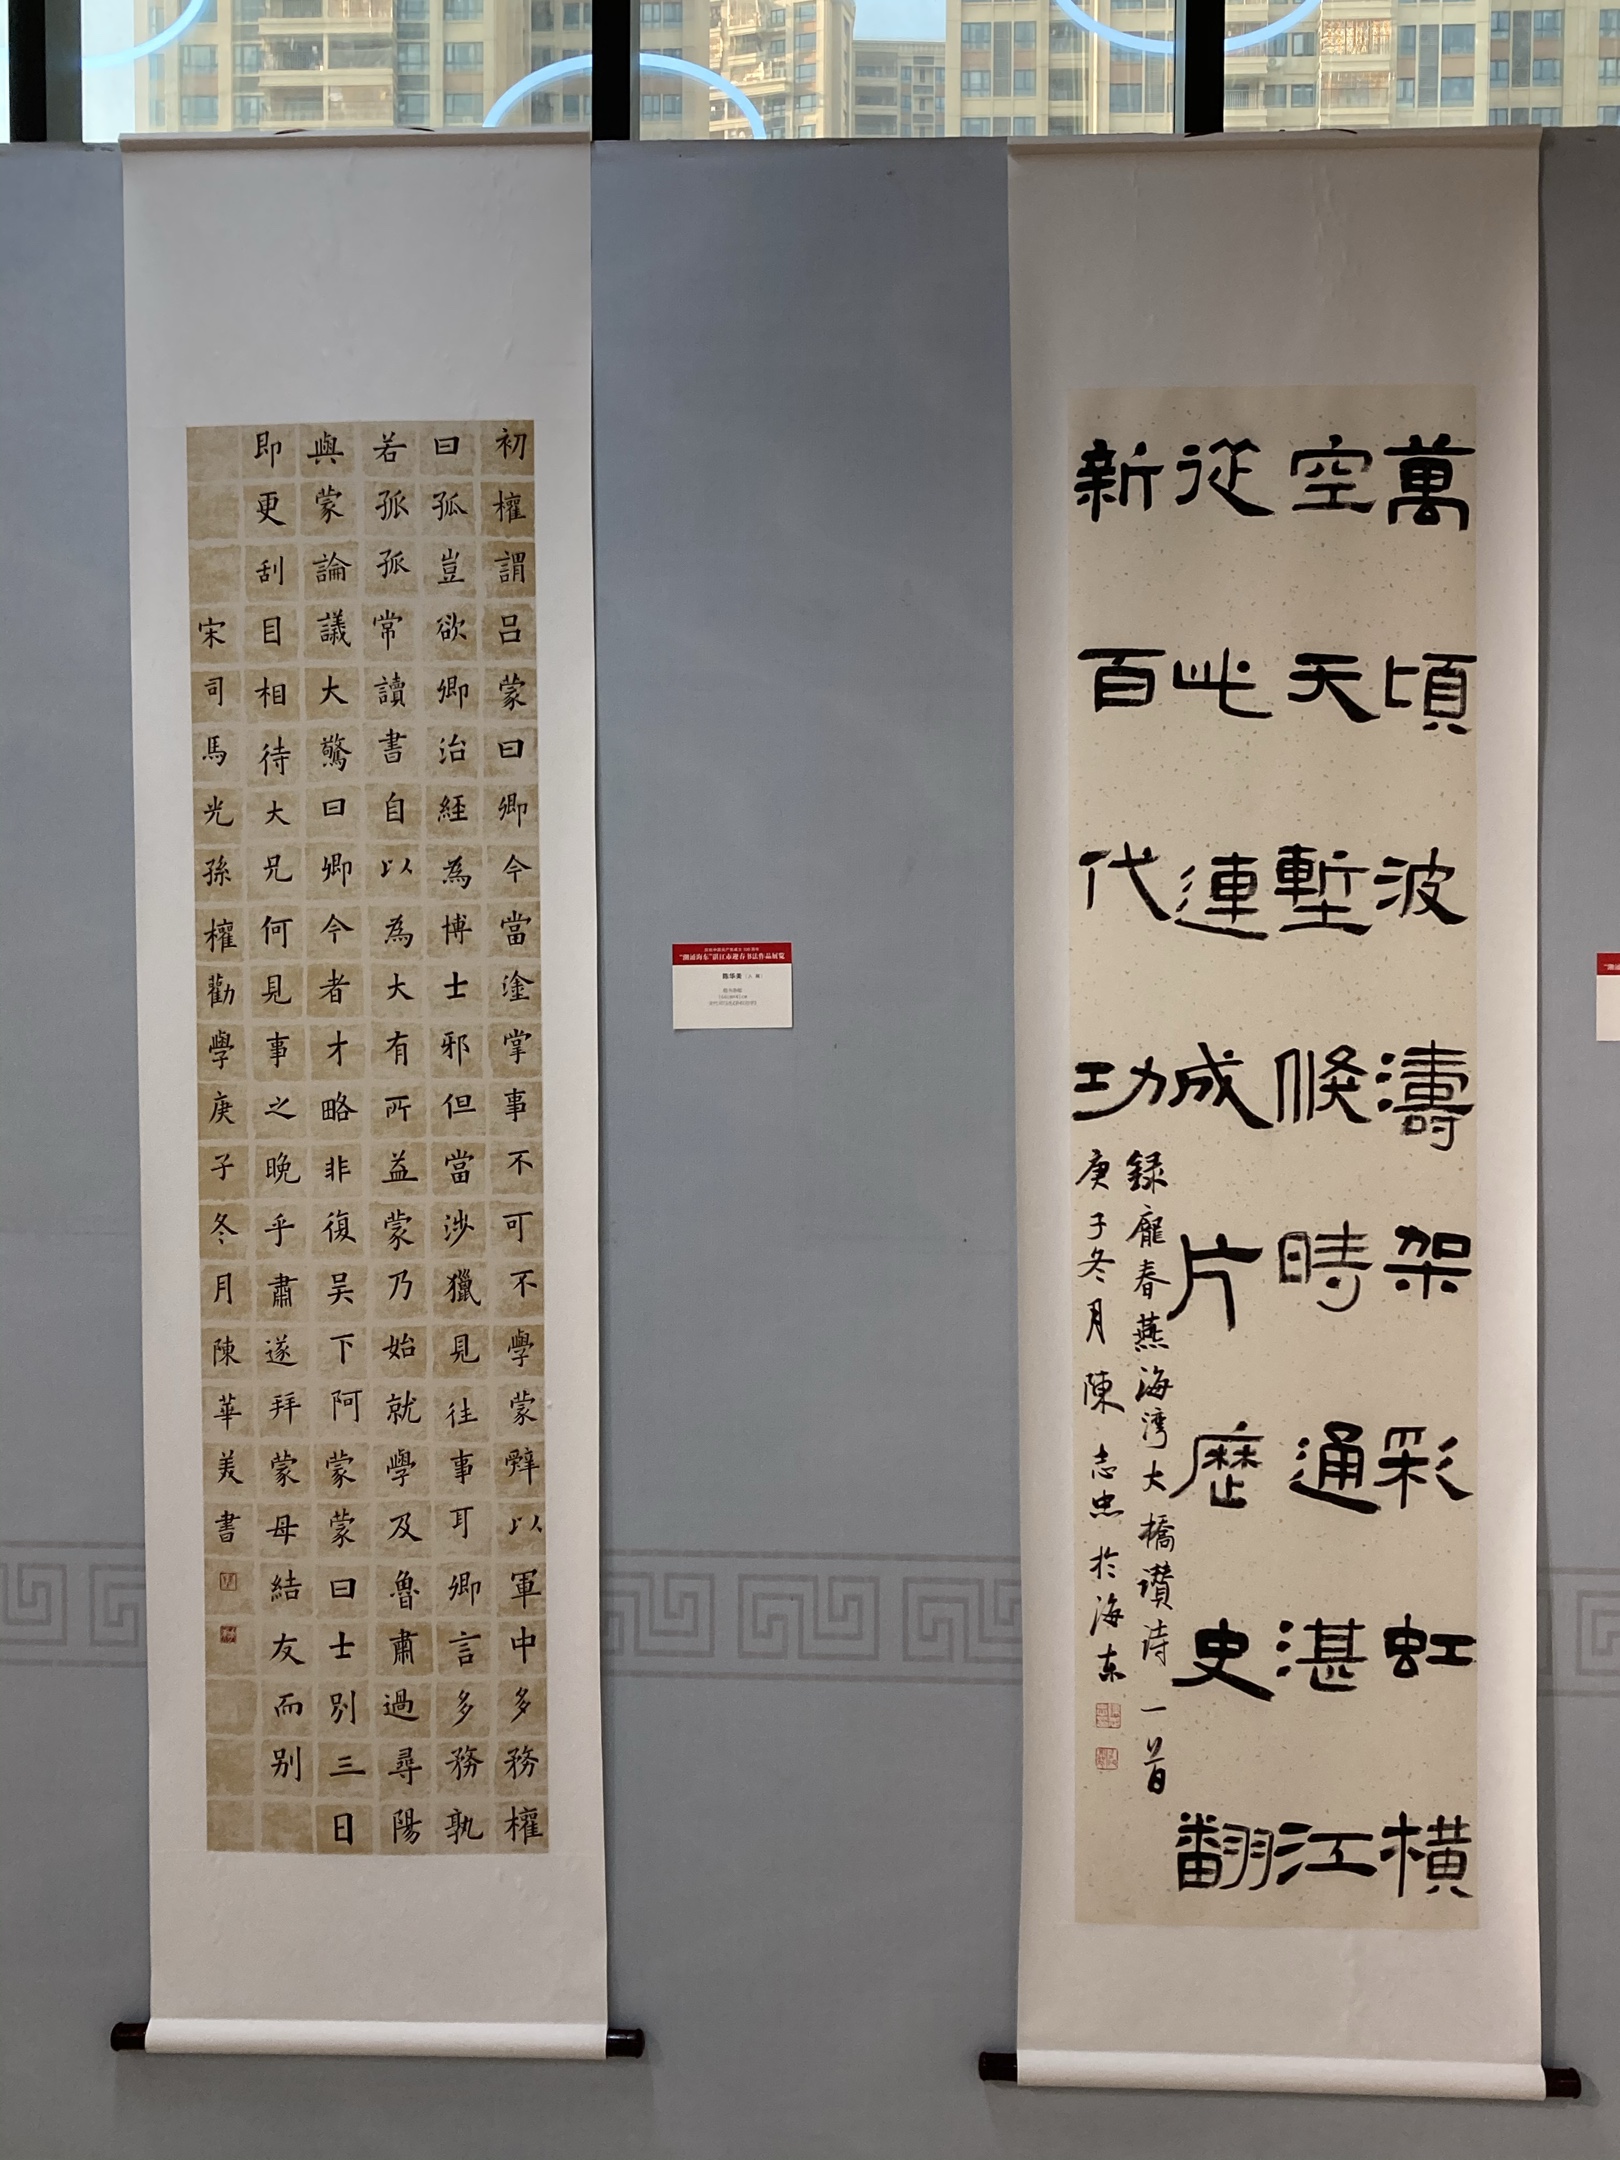 初權謂呂蒙曰卿今當塗掌事不可不學蒙辤以軍中多務權
曰孤豈欲卿治經為博士邪但當涉獵見往事耳卿言多務孰
若孤孤常讀書自以為大有所益蒙乃始就學及魯肅過尋陽
與蒙論議大驚曰卿今者才略非復吴下阿蒙蒙曰士別三日
即更刮目相待大兄何見事之晚乎肅遂拜蒙母結友而別
宋司馬光孫權勸學庚子冬月陳華美書
庆祝中国共产党成立100周年
“潮涌海东”湛江市迎春书法作品展览
陈华美
萬頃波濤架彩虹橫
空天塹倏時通湛江
從此連成片歷史翻
新百代功
録龐春燕海湾大橋讚诗一首
庚子冬月陳志忠於海东